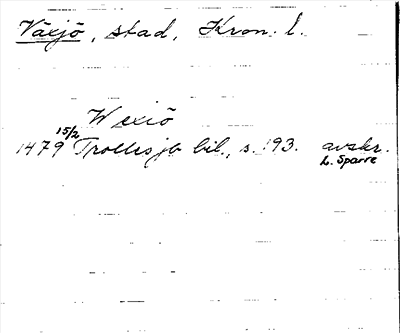 Växjö, stad, Kron. l.
Wexiö
1479 15/2 Trolles jb bil., s. 193. avskr.
L. Sparre